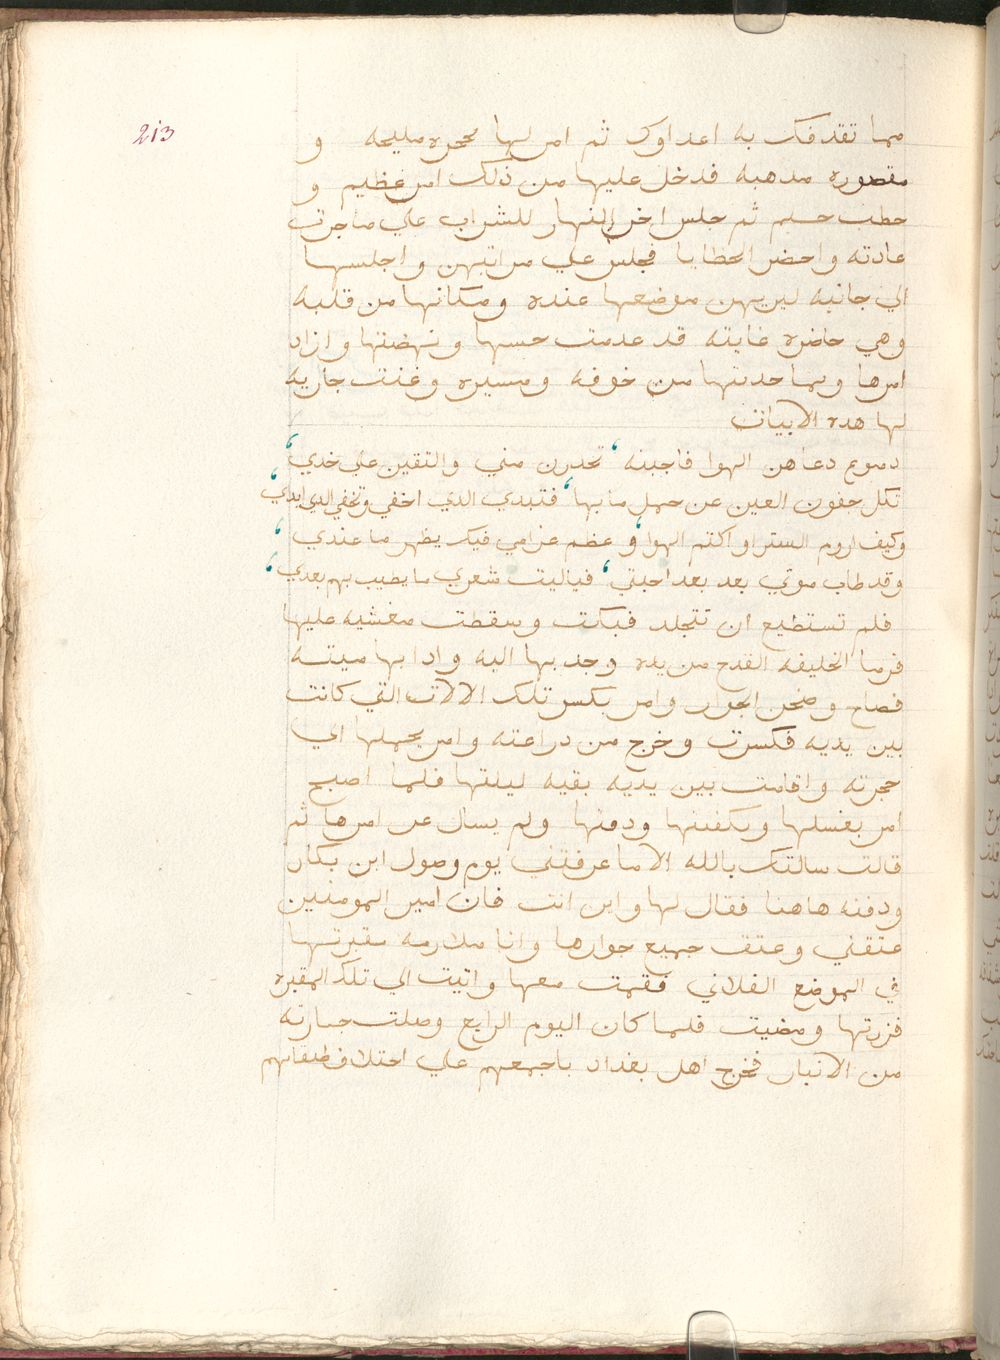 213
مما تقدفك به اعداوك ثم امر لها بحجره مليحه و
مقصوره مدهبه فدخل عليها من ذلك امر عظيم و
خطب جسيم ثم جلس اخر النهار للشراب علي ماجرت
عادته واحضر الحظايا فجلس علي مراتبهن واجلسها
الي جانبه ليريهن موضعها عنده ومكانها من قلبه
وهي حاضره غايبه قد عدمت حسها ونهضتها وازاد
امرها وبما حدثتها من خوفه ومسيره وغنت جاريه
لها هده الابيات
دموع دعاهن الهوا فاجبنه تحدرن مني والتقين علي خدي
تكل جفون العين عن حمل ما بها فتبدي الدي اخفي وتخفي الدي ابدي
وكيف اروم الستر او اكتم الهوا وعظم غرامي فيك يظهر ما عندي
وقد طاب موتي بعد بعد احبتي فياليت شعري ما يطيب بهم بعدي
فلم تستطيع ان تتجلد فبكت وسقطت مغشيه عليها
فرما الخليفه القدح من يده وجدبها اليه وادا بها ميته
فصاح وضجن الجوار وامر بكسر تلك الالات التي كانت
بين يديه فكسرت وخرج من دراعته وامر بحملها الي
حجرته واقامت بين يديه بقيه ليلتها فلما اصبح
امر بغسلها وتكفينها ودفنها ولم يسال عن امرها ثم
قالت سالتك بالله الا ما عرفتني يوم وصول ابن بكار
ودفنه هاهنا فقال لها واين انت فان امير المومنين
عتقني وعتق جميع جوارها وانا ملازمه مقبرتها
في الموضع الفلاني فقمت معها واتيت الي تلك المقبره
فزرتها ومضيت فلما كان اليوم الرابع وصلت جنازته
من الانبار فخرج اهل بغداد باجمعهم علي اختلاف طبقاتهم